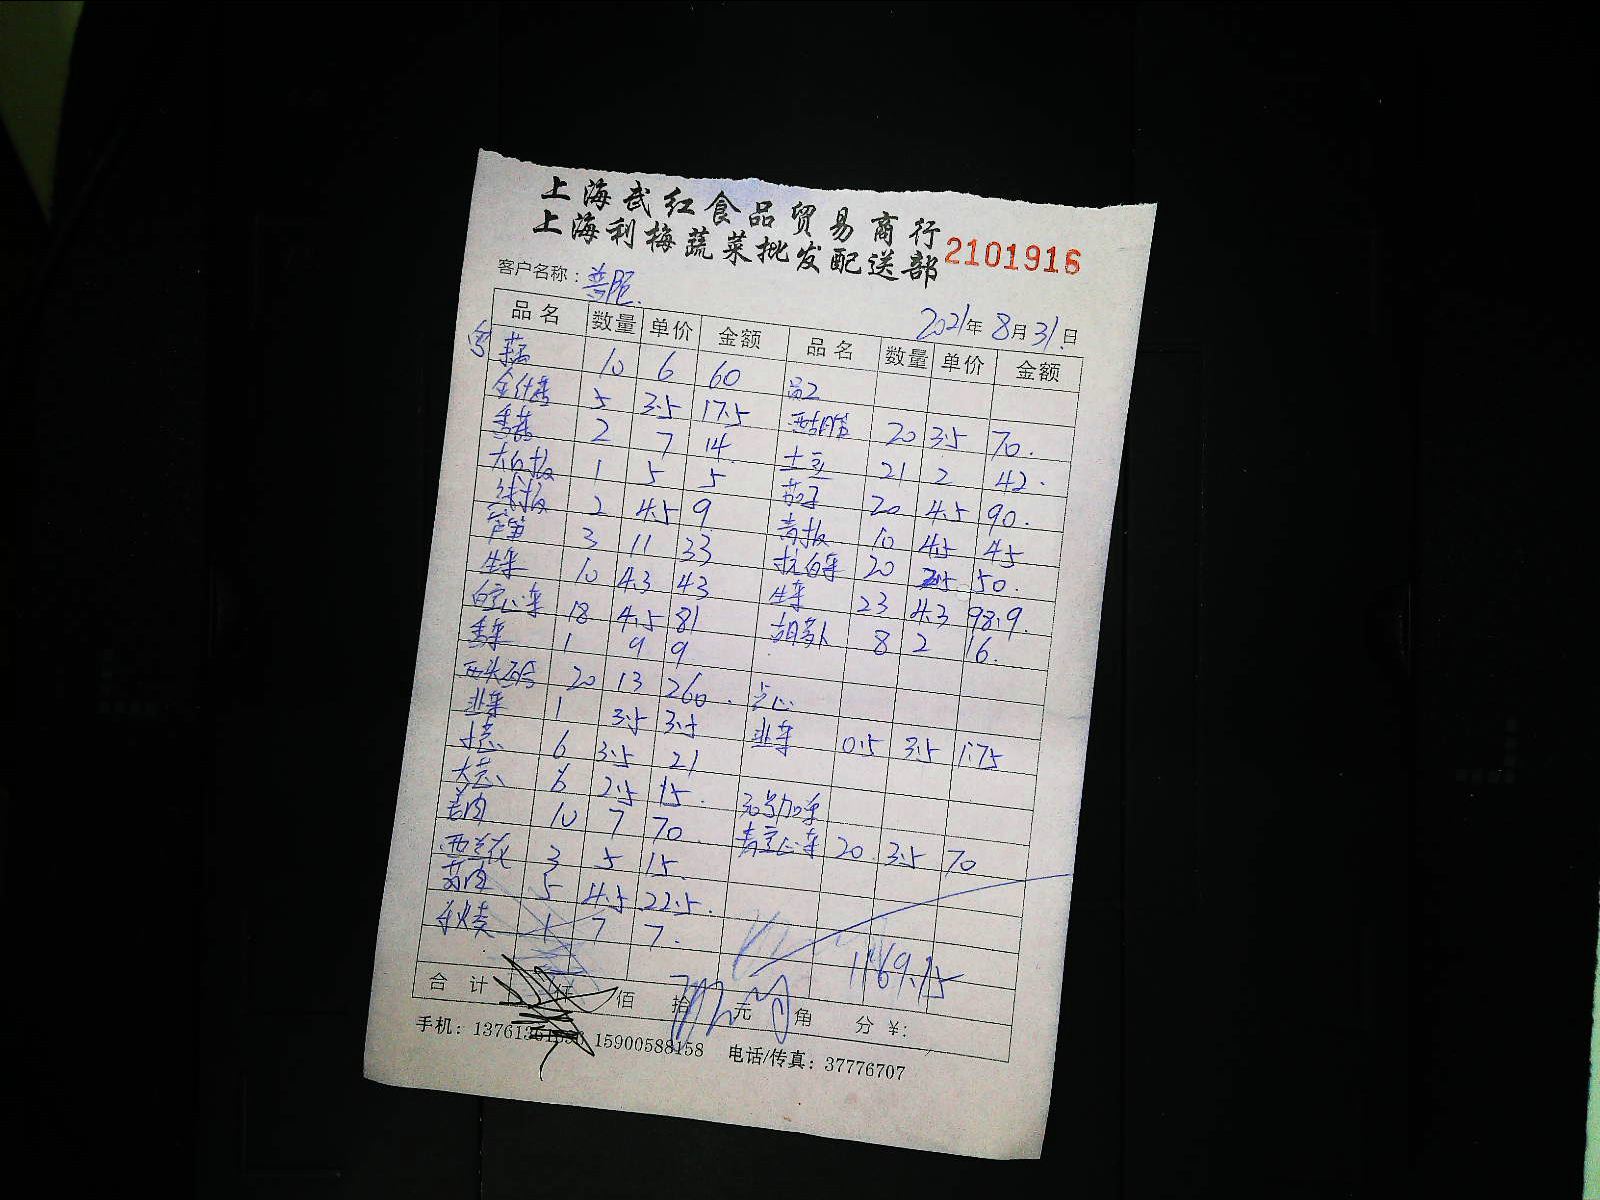 上海武红食品贸易商行
上海利梅蔬菜批发配送部 2101916
客户名称：普陀
2021年8月31日
品名 数量 单价 金额 品名 数量 单价 金额
10 6 60 员工
5 3.5 17.5 20 3.5 70.
香菇 2 7 14 土豆 21 2 42.
1 5 5 茄子 20 4.5 90.
2 4.5 9 青椒 10 4.5 45
芦笋 3 11 33 杭白菜 20 2.5 50.
生菜 10 4.3 43 生菜 23 4.3 98.9
18 4.5 81 胡萝卜 8 2 16.
香菜 1 9 9
20 13 260. 点心
韭菜 1 3.5 3.5 韭菜 0.5 3.5 1.75
6 3.5 21
大葱 6 2.5 15.
姜肉 10 7 70.
西兰花 3 5 15. 20 3.5 70
5 4.5 22.5.
1 7 7.
1169.15
合计 仟 佰 拾 元 角 分 ¥:
手机： 15900588158 电话/传真：37776707